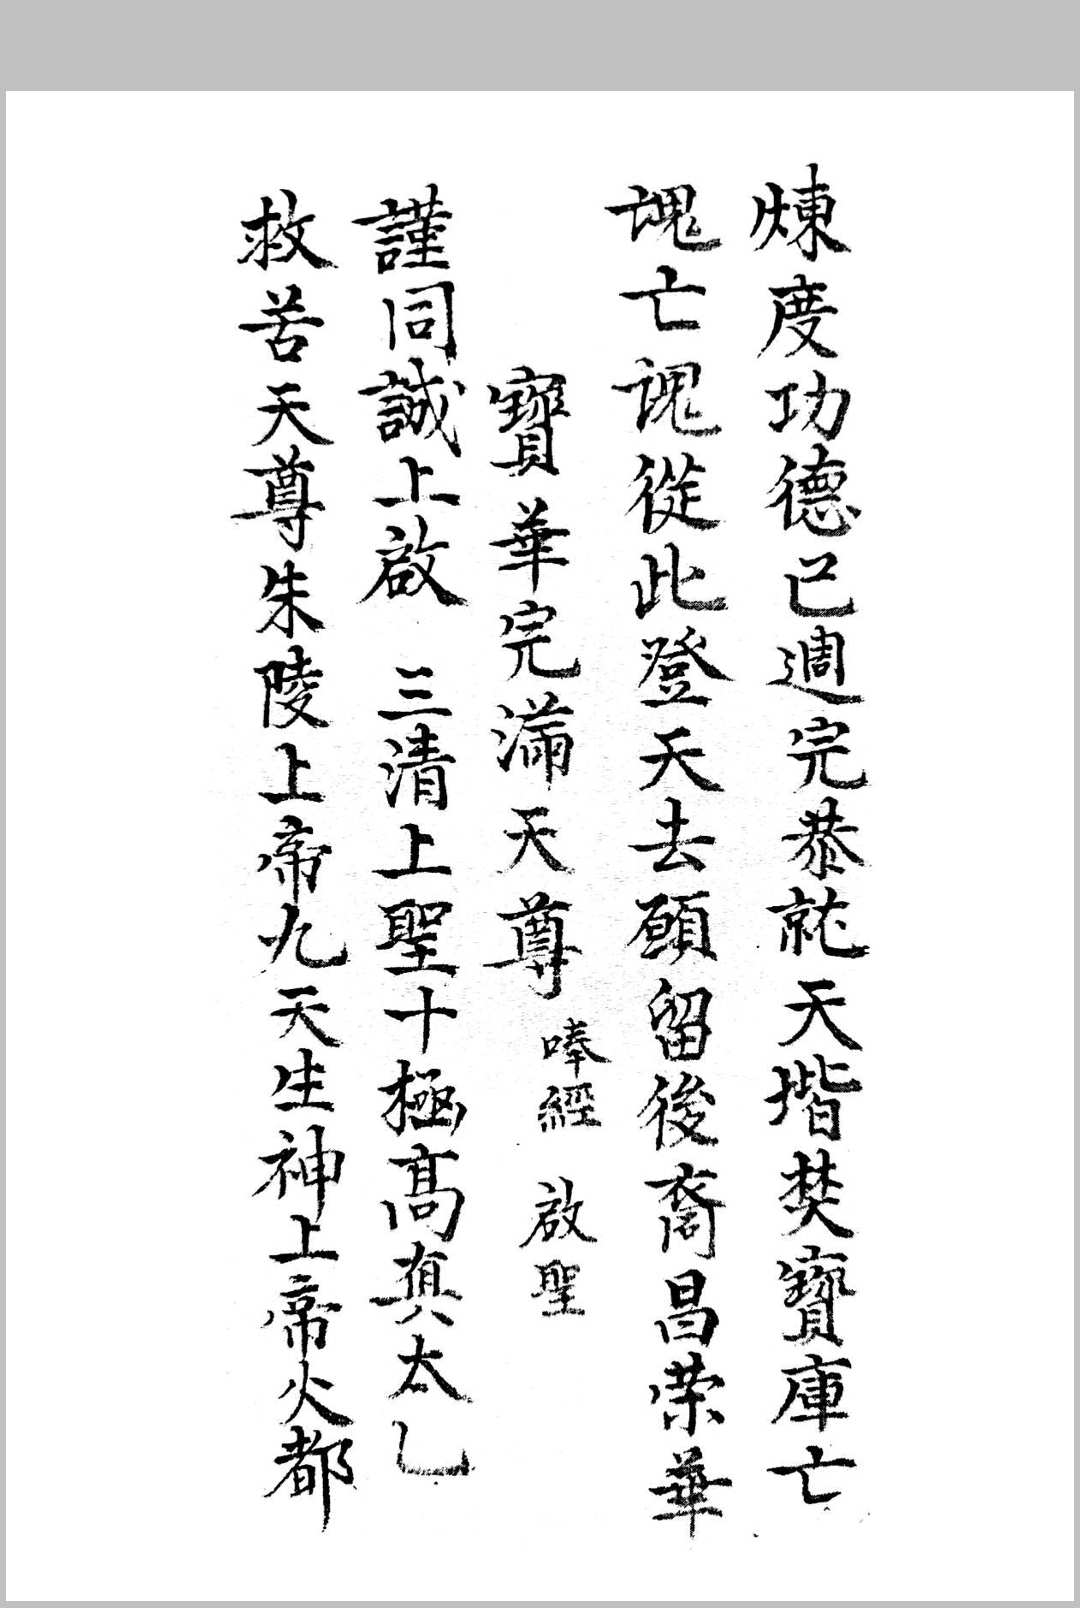 煉度功德已週完恭就天堦焚寶庫亡
魂亡魂從此登天去願留後裔昌荣華
寶華完滿天尊 唪經 啟聖
謹同誠上啟 三清上聖十極高真太乙
救苦天尊朱陵上帝九天生神上帝火都